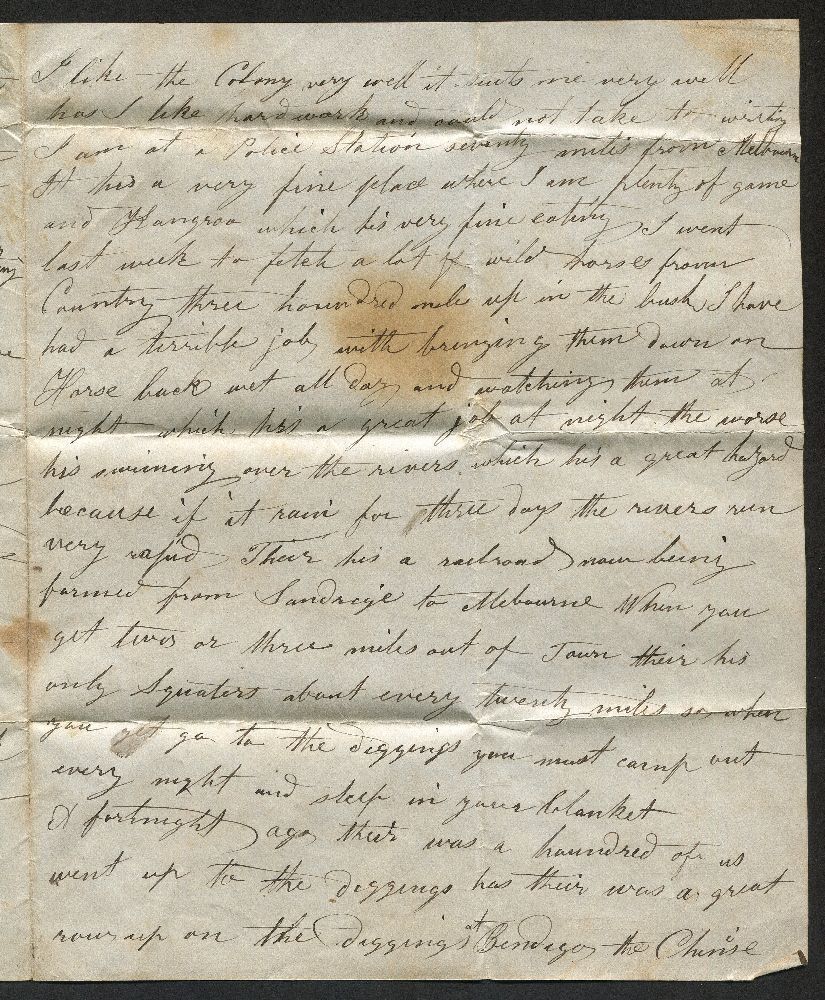 I like the Colony very well it suits me very well
has I like hard work and could not take to writing
I am at a Police Station seventy miles from Melbourne
It his a very fine place where I am plenty of game
and Kangroo which his very fine eating I went
last week to fetch a lot of wild horses from
Country three houndred mile up in the bush I have
had a terrible job with bringing them down on
Horse back wet all day and watching them at
night which his a great job at night the worse
his swiming over the rivers which his a great hazard
because if it rain for three days the rivers run
very rapid Their his a railroad now being
formed from Sandrige to Melbourne When you
get two or three miles out of Town their his
only Squaters about every twenty miles so when
you go to the diggings you must camp out
every night and sleep in your blanket
A fortnight ago their was a houndred of us
went up to the diggings has their was a great
row up on the diggings at Bendigo the Chinese